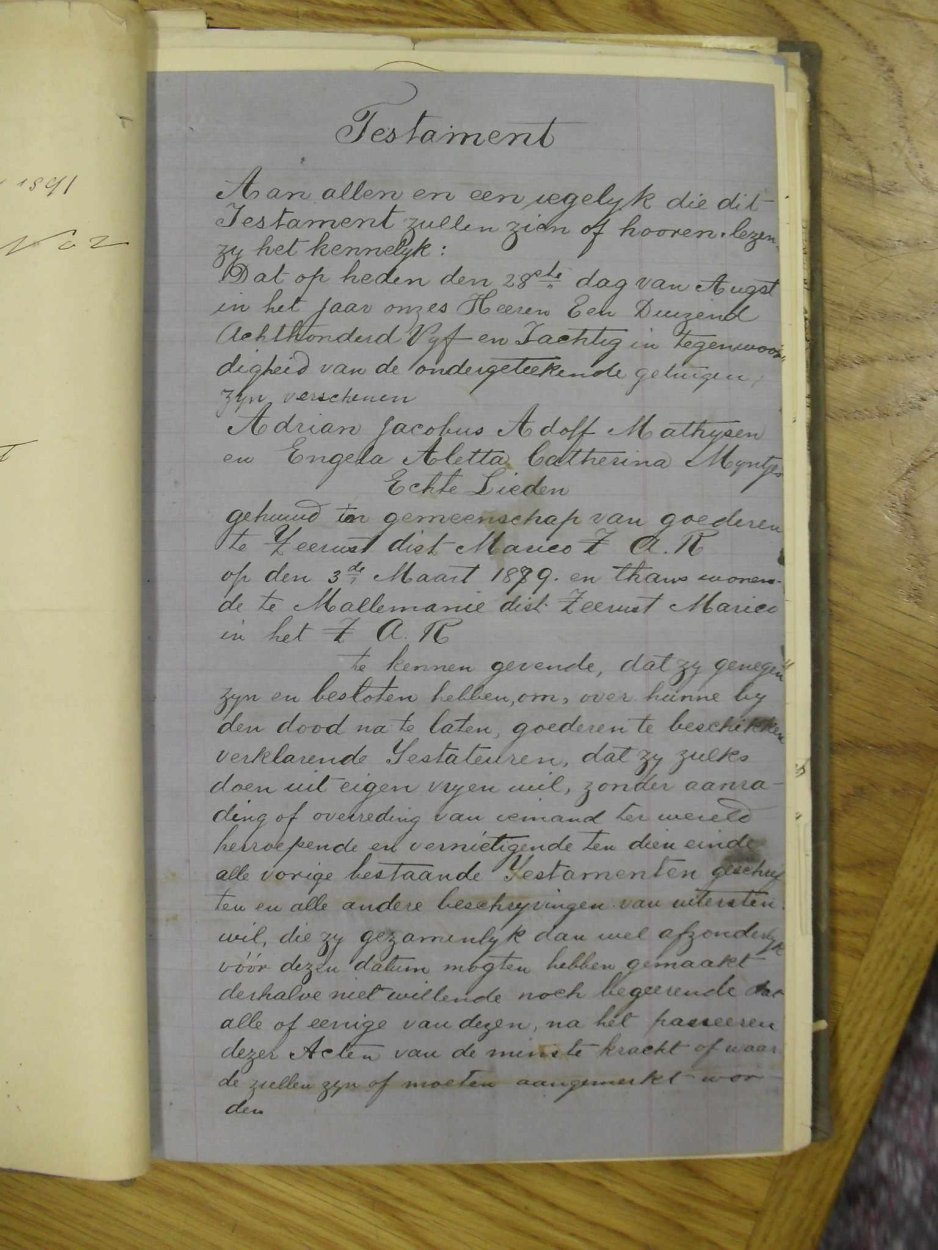 1891
No 2
Testament
Aan allen en een iegelyk die dit
Testament zullen zien of hooren lezen,
zy het kennelyk:
Dat op heden den 28ste dag van Augst
in het jaar onzes Heeren Een Duizend
Achthonderd Vyf en Tachtig in tegenwoor
digheid van de ondergeteekende getuigen,
zyn verschenen
Adrian Jacobus Adolf Mathysen
en Engela Aletta Catherina Myntjes
Echte Lieden
gehuwd in gemeenschap van goederen
te Zeerust dist Marico Z A. R
op den 3de Maart 1879. en thans wonen-
de te Mallemanie dist Zeerust Marico
in het Z A. R
te kennen gevende, dat zy genegen
zyn en besloten hebben, om, over hunne by
den dood na te laten, goederen te beschikken
verklarende Testateuren, dat zy zulks
doen uit eigen vryen wil, zonder aanra-
ding of overreding van iemand ter wereld
herroepende en vernietigende ten dien einde
alle vorige bestaande Testamenten geschrif
ten en alle andere beschryvingen van uitersten
wil, die zy gezamenlyk dan wel afzonderlyk
vóór dezen datum mogten hebben gemaakt
derhalve niet willende noch begeerende dat
alle of eenige van dezen, na het passeeren
dezer Acten van de minste kracht of waar
de zullen zyn of moeten aangemerkt wor
den